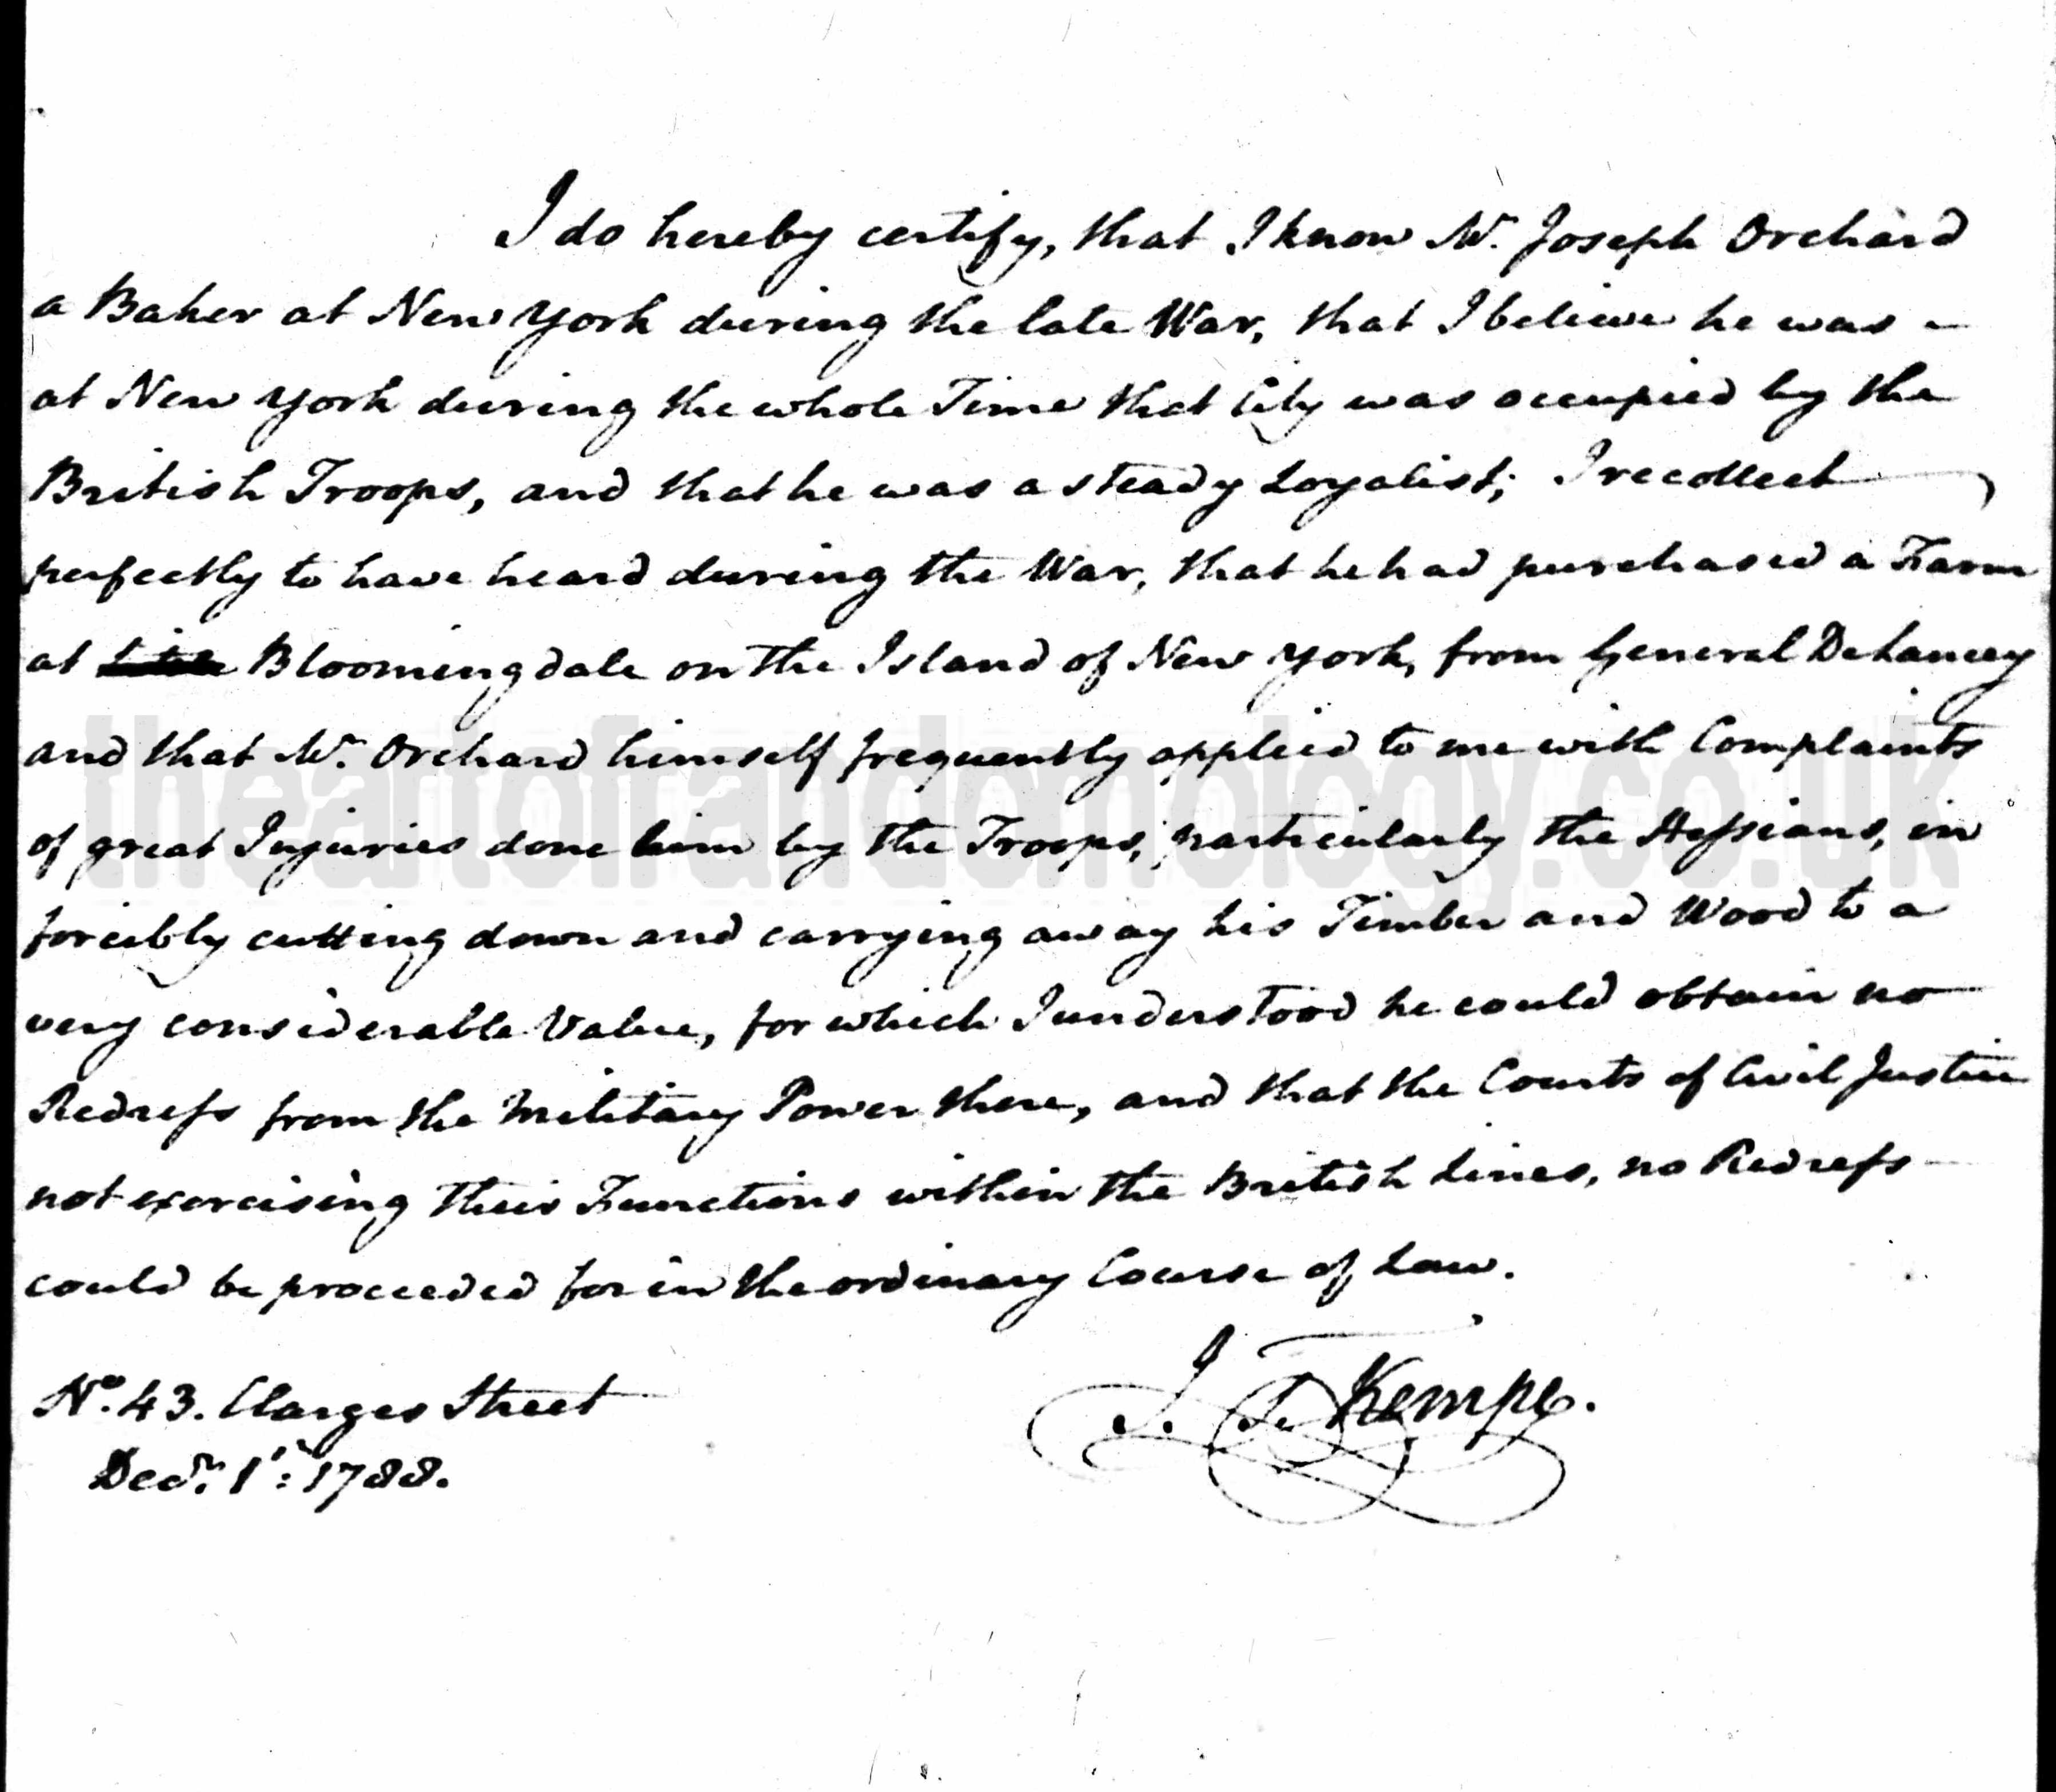 I do hereby certify, that I know Mr. Joseph Orchard
a Baker at New York during the late War, that I believe he was
at New York during the whole Time that City was occupied by the
British Troops, and that he was a steady Loyalist; I recollect
perfectly to have heard during the War, that he had purchased a Farm
at Bloomingdale on the Island of New York, from General DeLancey
and that Mr. Orchard himself frequently applied to me with Complaints
theartofrandomology.co.uk
of great Injuries done him by the Troops, particularly the Hessians, in
forcibly cutting down and carrying away his Timber and Wood to a
very considerable Value, for which I understood he could obtain no
Redress from the Military Power there, and that the Courts of Civil Justice
not exercising their Functions within the British Lines, no Redress
could be proceeded for in the ordinary Course of Law.
No. 43. Clarges Street
J. T. Kempe.
Decr. 1st: 1788.